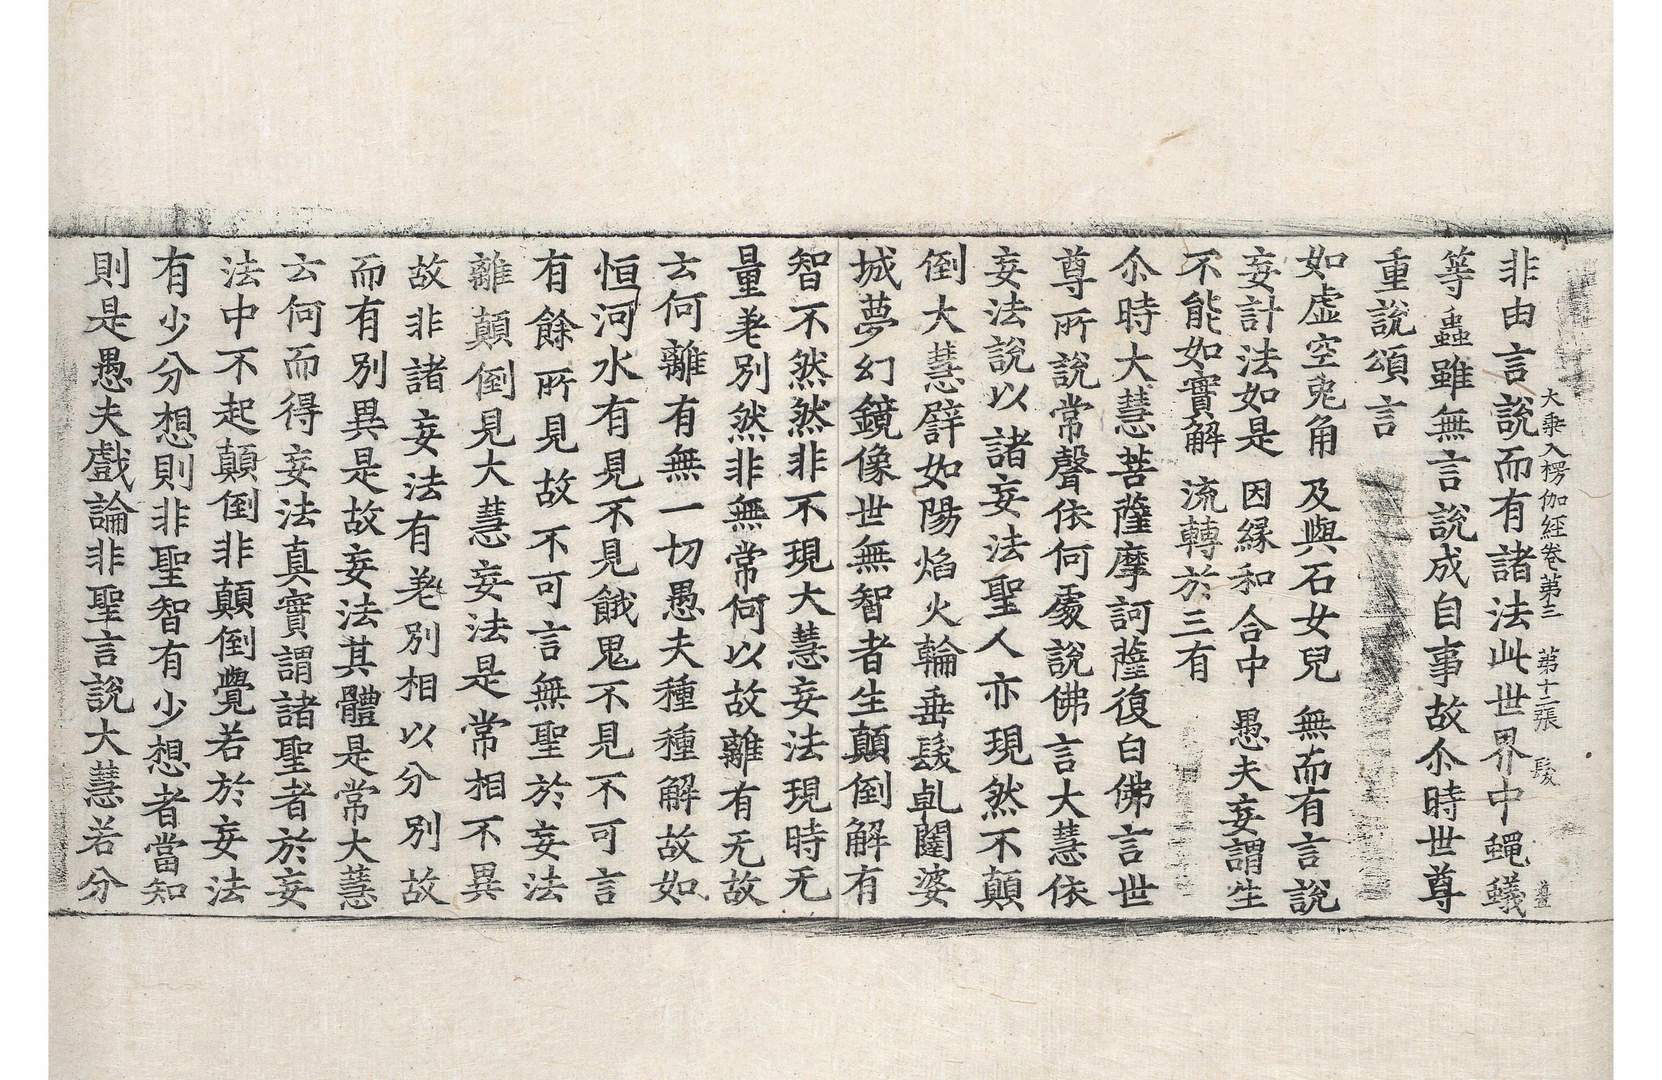 大乘入楞伽經卷第三 第十二張 髮
非由言說而有諸法此世界中蠅蟻
等蟲雖無言說成自事故尒時世尊
重說頌言
如虛空兎角 及與石女兒 無而有言說
妄計法如是 因縁和合中 愚夫妄謂生
不能如實解 流轉於三有
尒時大慧菩薩摩訶薩復白佛言世
尊所說常聲依何處說佛言大慧依
妄法說以諸妄法聖人亦現然不顛
倒大慧譬如陽焰火輪垂髮乹闥婆
城夢幻鏡像世無智者生顛倒解有
智不然然非不現大慧妄法現時无
量差別然非無常何以故離有无故
云何離有無一切愚夫種種解故如
恒河水有見不見餓鬼不見不可言
有餘所見故不可言無聖於妄法
離顛倒見大慧妄法是常相不異
故非諸妄法有差別相以分別故
而有別異是故妄法其體是常大慧
云何而得妄法真實謂諸聖者於妄
法中不起顛倒非顛倒覺若於妄法
有少分想則非聖智有少想者當知
則是愚夫戲論非聖言說大慧若分